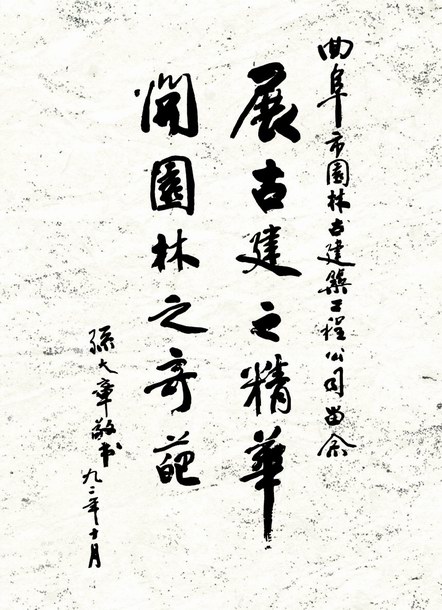 曲阜市園林古建築工程公司留念
展古建之精華
開園林之奇葩
孫大章敬书 九二年十月